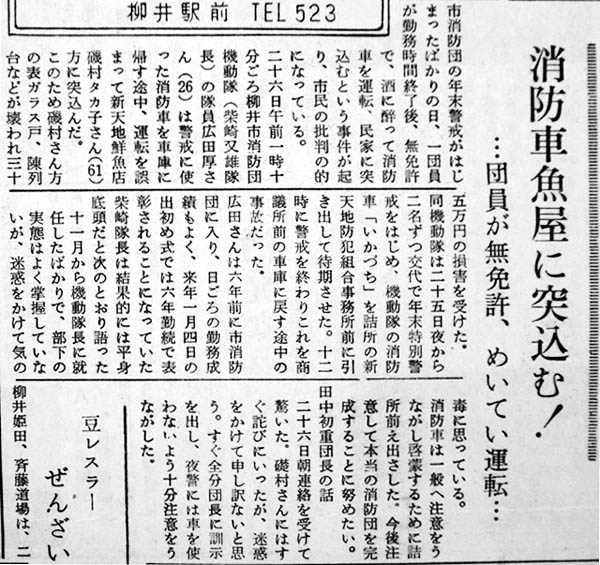 柳井駅前 TEL 523
消防車魚屋に突込む!
…団員が無免許、めいてい運転…
市消防団の年末警戒がはじ
まったばかりの日、一団員
が勤務時間終了後、無免許
で、酒に酔って消防
車を運転、民家に突
込むという事件が起
り、市民の批判の的
になっている。
二十六日午前一時十
分ごろ柳井市消防団
機動隊(柴崎又雄隊
長)の隊員広田厚さ
ん(26)は警戒に使
った消防車を車庫に
帰す途中、運転を誤
まって新天地鮮魚店
磯村タカ子さん(61)
方に突込んだ。
このため磯村さん方
の表ガラス戸、陳列
台などが壊われ三十
五万円の損害を受けた。
同機動隊は二十五日夜から
二名ずつ交代で年末特別警
戒をはじめ、機動隊の消防
車「いかづち」を詰所の新
天地防犯組合事務所前に引
き出して待期させた。十二
時に警戒を終わりこれを商
議所前の車庫に戻す途中の
事故だった。
広田さんは六年前に市消防
団に入り、日ごろの勤務成
績もよく、来年一月四日の
出初め式では六年勤続で表
彰されることになっていた
柴崎隊長は結果的には平身
底頭だと次のとおり語った
十一月から機動隊長に就
任したばかりで、部下の
実態はよく掌握していな
いが、迷惑をかけて気の
毒に思っている。
消防車は一般へ注意をう
ながし啓蒙するために詰
所前え出さした。今後注
意して本当の消防団を完
成することに努めたい。
田中初重団長の話
二十六日朝連絡を受けて
驚いた。礒村さんにはす
ぐ詫びにいったが、迷惑
をかけて申し訳ないと思
う。すぐ全分団長に訓示
を出し、夜警には車を使
わないよう十分注意をう
ながした。
豆レスラー
ぜんざい
柳井姫田、斉藤道場は、二